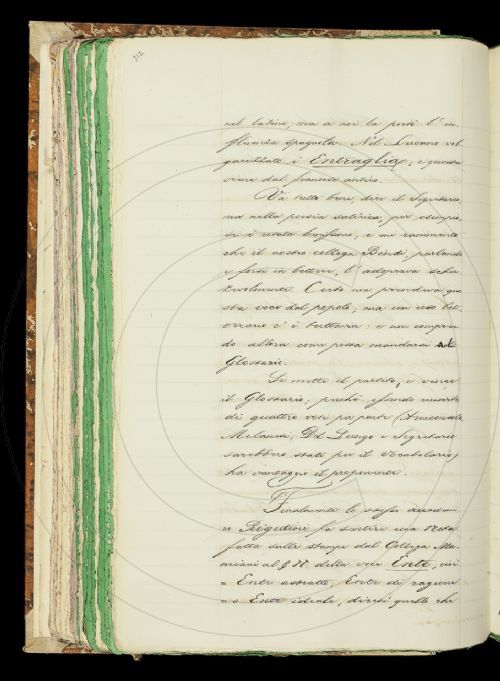 312
nel latino, ma a noi la portò l'in-
fluenza spagnola. Nel Lucano vol-
gareggiato è Entraglia, e questa
viene dal francese antico.
Va tutto bene, dice il Segretario,
ma nella poesia satirica, per esempio,
si è usata benissimo, e mi rammento
che il nostro collega Bindi, parlando
e forse in lettere, l'adoprava scher-
zevolmente. Certo non prendeva que-
sta voce dal popolo, ma un uso let-
terario c'è tuttavia: e non compren-
do allora come possa mandarsi al
Glossario.
Si mette il partito, e vince
il Glossario, perchè, essendo
di quattro voti per parte (Arciconsolo
Milanesi, Del Lungo e Segretario
sarebbero stati per il Vocabolario)
ha vantaggio il proponente.
Finalmente lo stesso accademi-
co Rigutini fa sentire una Nota
fatta sulle stampe dal Collega Ma-
miani al § IV della voce Ente, ivi
= Ente astratto, Ente di ragione
= o Ente ideale, dicesi quello che